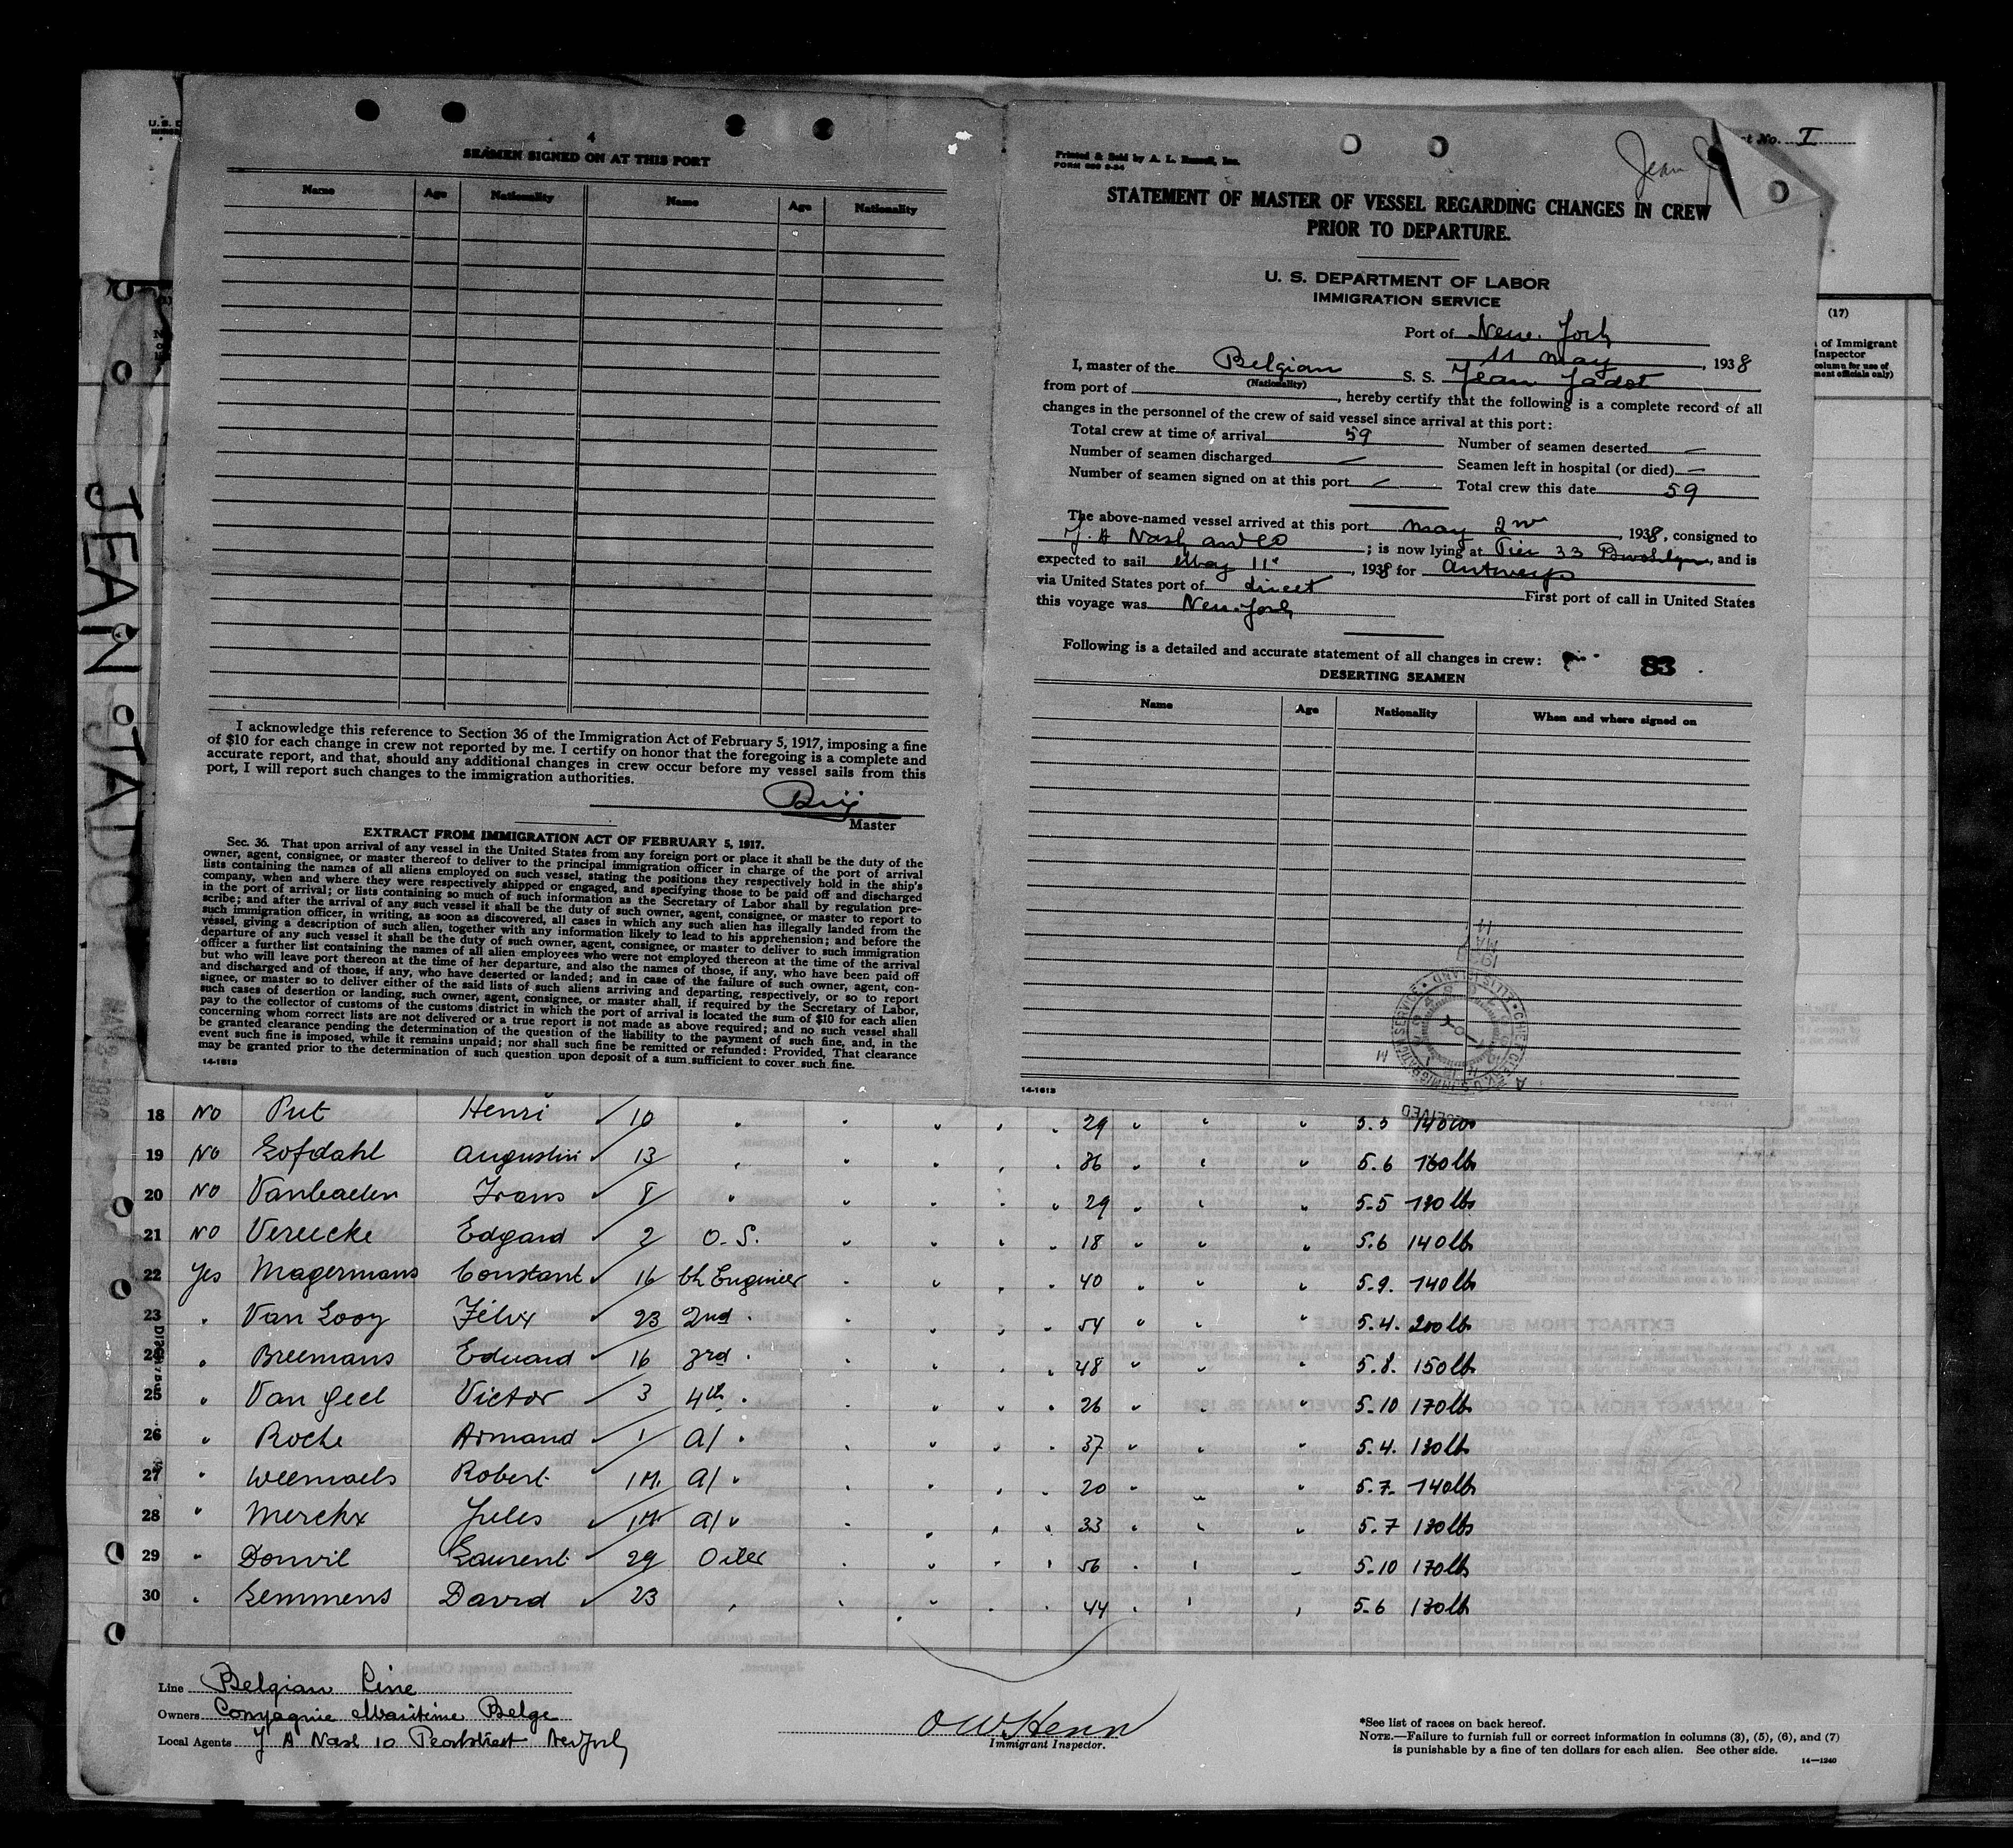 JEAN JADOT
4
SEAMEN SIGNED ON AT THIS PORT
Name Age Nationality Name Age Nationality
I acknowledge this reference to Section 36 of the Immigration Act of February 5, 1917, imposing a fine
of $10 for each change in crew not reported by me. I certify on honor that the foregoing is a complete and
accurate report, and that, should any additional changes in crew occur before my vessel sails from this
port, I will report such changes to the immigration authorities.
Master
EXTRACT FROM IMMIGRATION ACT OF FEBRUARY 5, 1917.
Sec. 36. That upon arrival of any vessel in the United States from any foreign port or place it shall be the duty of the
owner, agent, consignee, or master thereof to deliver to the principal immigration officer in charge of the port of arrival
lists containing the names of all aliens employed on such vessel, stating the positions they respectively hold in the ship's
company, when and where they were respectively shipped or engaged, and specifying those to be paid off and discharged
in the port of arrival; or lists containing so much of such information as the Secretary of Labor shall by regulation pre-
scribe; and after the arrival of any such vessel it shall be the duty of such owner, agent, consignee, or master to report to
such immigration officer, in writing, as soon as discovered, all cases in which any such alien has illegally landed from the
vessel, giving a description of such alien, together with any information likely to lead to his apprehension; and before the
departure of any such vessel it shall be the duty of such owner, agent, consignee, or master to deliver to such immigration
officer a further list containing the names of all alien employees who were not employed thereon at the time of the arrival
but who will leave port thereon at the time of her departure, and also the names of those, if any, who have been paid off
and discharged and of those, if any, who have deserted or landed; and in case of the failure of such owner, agent, con-
signee, or master so to deliver either of the said lists of such aliens arriving and departing, respectively, or so to report
such cases of desertion or landing, such owner, agent, consignee, or master shall, if required by the Secretary of Labor,
pay to the collector of customs of the customs district in which the port of arrival is located the sum of $10 for each alien
concerning whom correct lists are not delivered or a true report is not made as above required; and no such vessel shall
be granted clearance pending the determination of the question of the liability to the payment of such fine, and, in the
event such fine is imposed, while it remains unpaid; nor shall such fine be remitted or refunded: Provided, That clearance
may be granted prior to the determination of such question upon deposit of a sum sufficient to cover such fine.
14-1613
Printed & Sold by A. L. Russell, Inc.
Jean J
No. I
STATEMENT OF MASTER OF VESSEL REGARDING CHANGES IN CREW
PRIOR TO DEPARTURE.
U. S. DEPARTMENT OF LABOR
IMMIGRATION SERVICE
Port of New-York
11 May, 1938
I, master of the Belgian S. S. Jean Jadot
(Nationality)
from port of , hereby certify that the following is a complete record of all
changes in the personnel of the crew of said vessel since arrival at this port:
Total crew at time of arrival 59 Number of seamen deserted –
Number of seamen discharged – Seamen left in hospital (or died) –
Number of seamen signed on at this port – Total crew this date 59
The above-named vessel arrived at this port May 2nd, 1938, consigned to
J. A Nash and Co ; is now lying at Pier 33 Brooklyn, and is
expected to sail May 11th, 1938 for Antwerp
via United States port of direct First port of call in United States
this voyage was New-York
Following is a detailed and accurate statement of all changes in crew: 83
DESERTING SEAMEN
Name Age Nationality When and where signed on
14-1613
(17)
of Immigrant
Inspector
column for use of
ment officials only)
18 No Put Henri 10 " 29 5.5
19 No Lofdahl Augustin 13 " 36 5.6 160 lbs
20 No Frans 8 " 29 5.5 130 lbs
21 No Vereecke Edgard 2 O.S. 18 5.6 140 lbs
22 Yes Magermans Constant 16 Ch Engineer 40 5.9. 140 lbs
23 " Van Looy Félix 23 2nd " 54 5.4. 200 lbs
24 " Breemans Eduard 16 3rd " 48 5.8. 150 lbs
25 " Van Geel Victor 3 4th " 26 5.10 170 lbs
26 " Roche Armand 1 A/ " 37 5.4. 130 lbs
27 " Weemaels Robert 1M. A/ " 20 5.7. 140 lbs
28 " Merckx Jules 1M A/ " 33 5.7 130 lbs
29 " Donvil Laurent 29 Oiler 56 5.10 170 lbs
30 " Lemmens David 23 " 44 5.6 130 lbs
Line Belgian Line
Owners Compagnie Maritime Belge
Local Agents J A Nash 10 Pearlstreet New York
Immigrant Inspector.
*See list of races on back hereof.
NOTE.—Failure to furnish full or correct information in columns (3), (5), (6), and (7)
is punishable by a fine of ten dollars for each alien. See other side.
14—1240